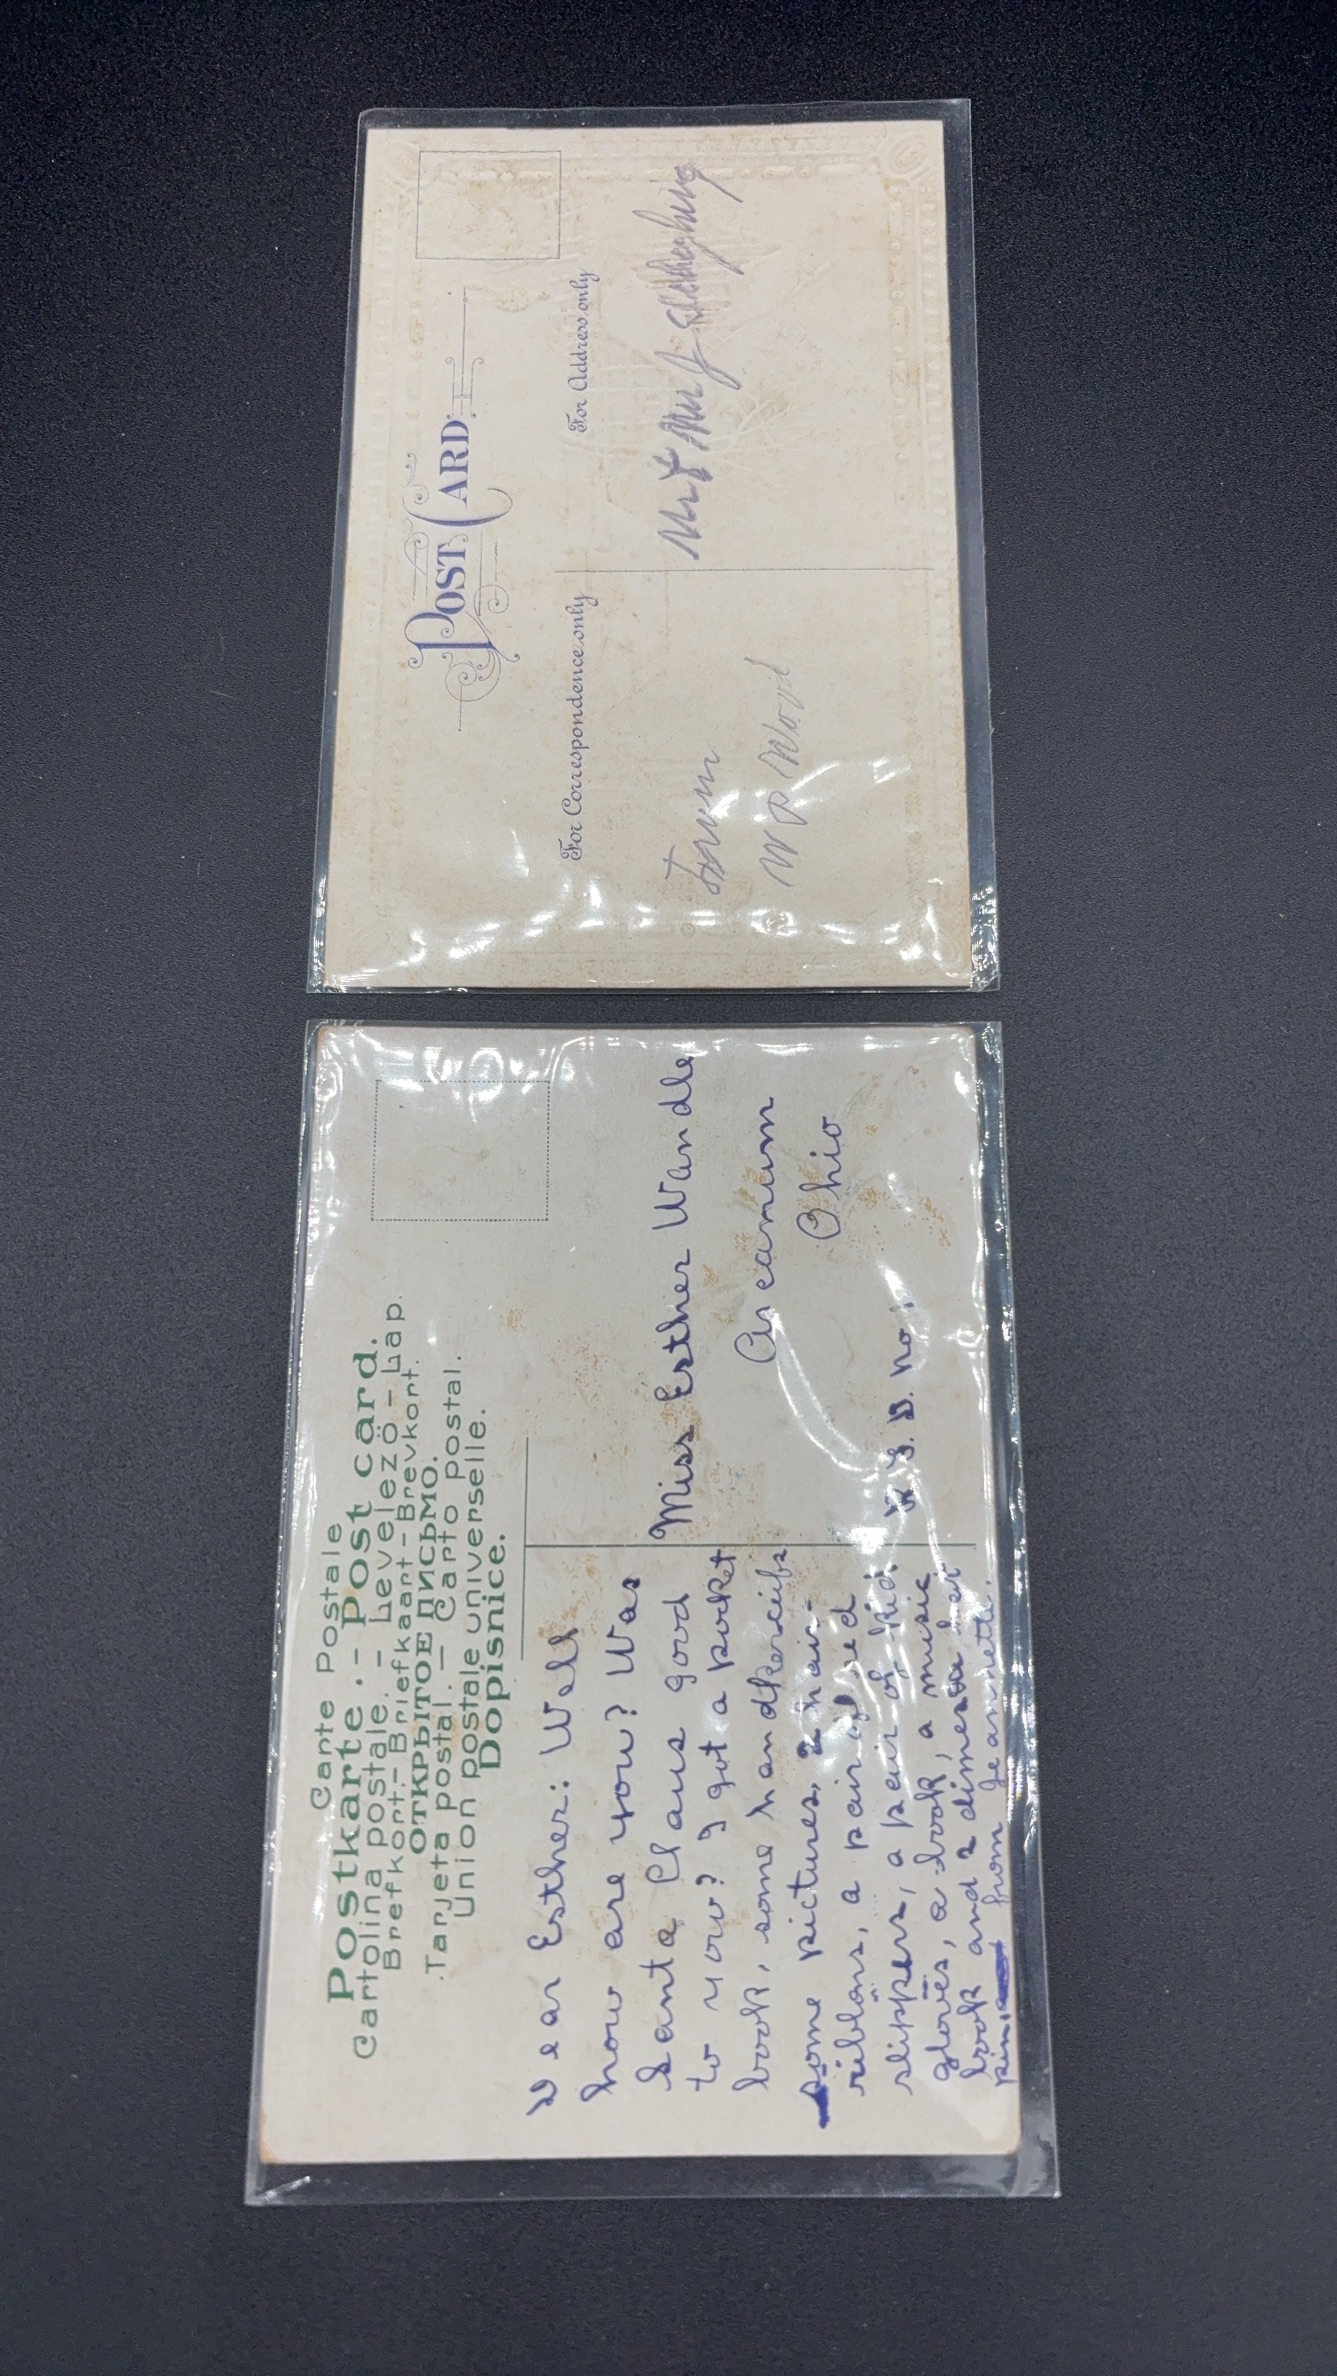 Post Card
For Correspondence only
For Address only
From
W P Wood
Mr & Mrs J
Carte Postale
Postkarte. – Post card.
Cartolina postale. – Levelező – Lap.
Brefkort. – Briefkaart – Brevkort.
ОТКРЫТОЕ ПИСЬМО.
Tarjeta postal. – Carto Postal.
Union postale universelle.
Dopisnice.
Dear Esther: Well
how are you? Was
Santa Claus good
to you? I got a pocket
book, some handkerceifs
some pictures, 2 hair-
ribbons, a pair of red
slippers, a pair of kid
gloves, a book, a music
book and a dimes
pin. from Jeannette.
Miss Esther Wandle
Ascanum
Ohio
R. F. D. No 1